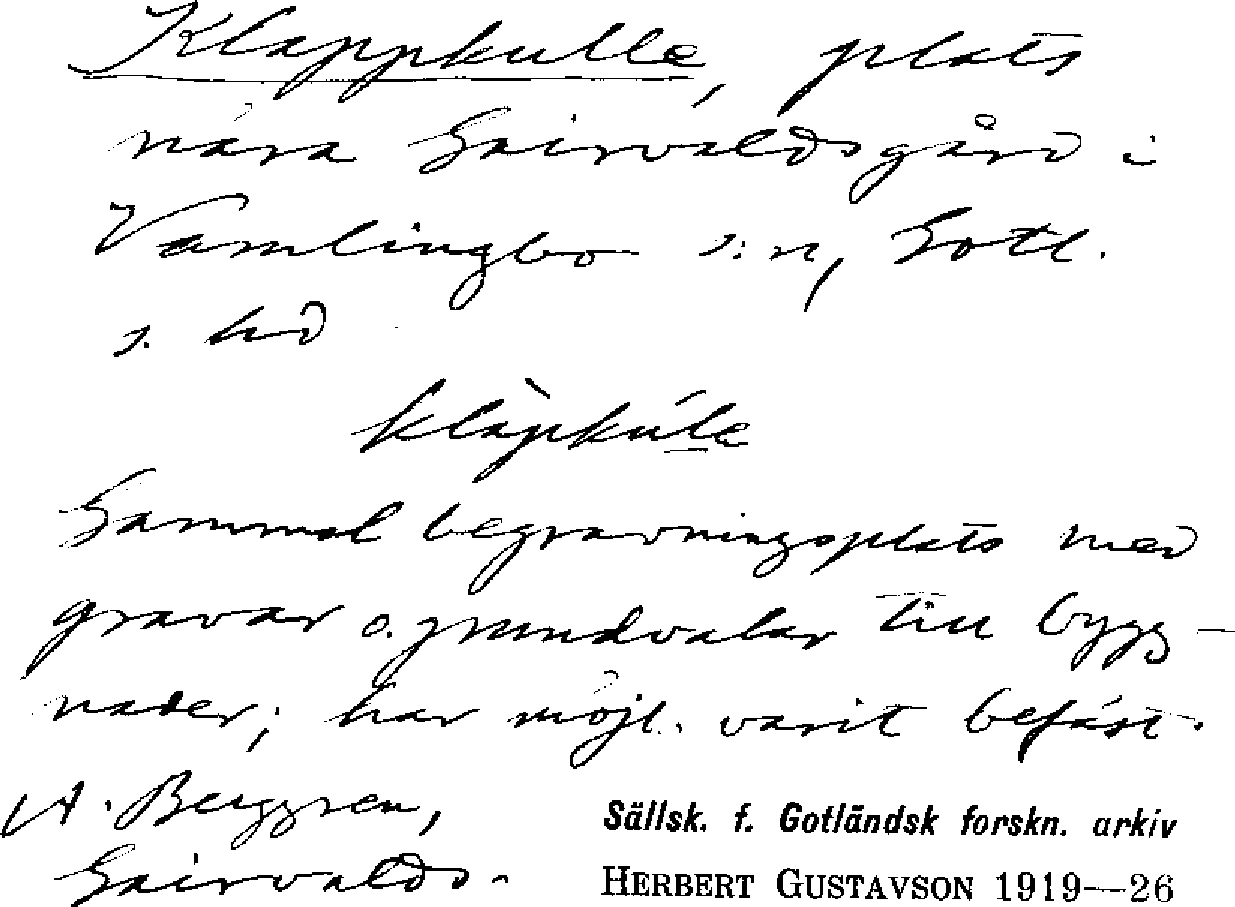 Klappkulle, plats
nära Gairvaldsgård i
Vamlingbo s:n, Gotl.
s. hd
klàpkúle
Gammal begravningsplats med
gravar o. grundvalar till bygg-
nader; har möjl. varit befäst.
A. Berggren,
Gairvalds.
Sällsk. f. Gotländsk forskn. arkiv
HERBERT GUSTAVSON 1919—26